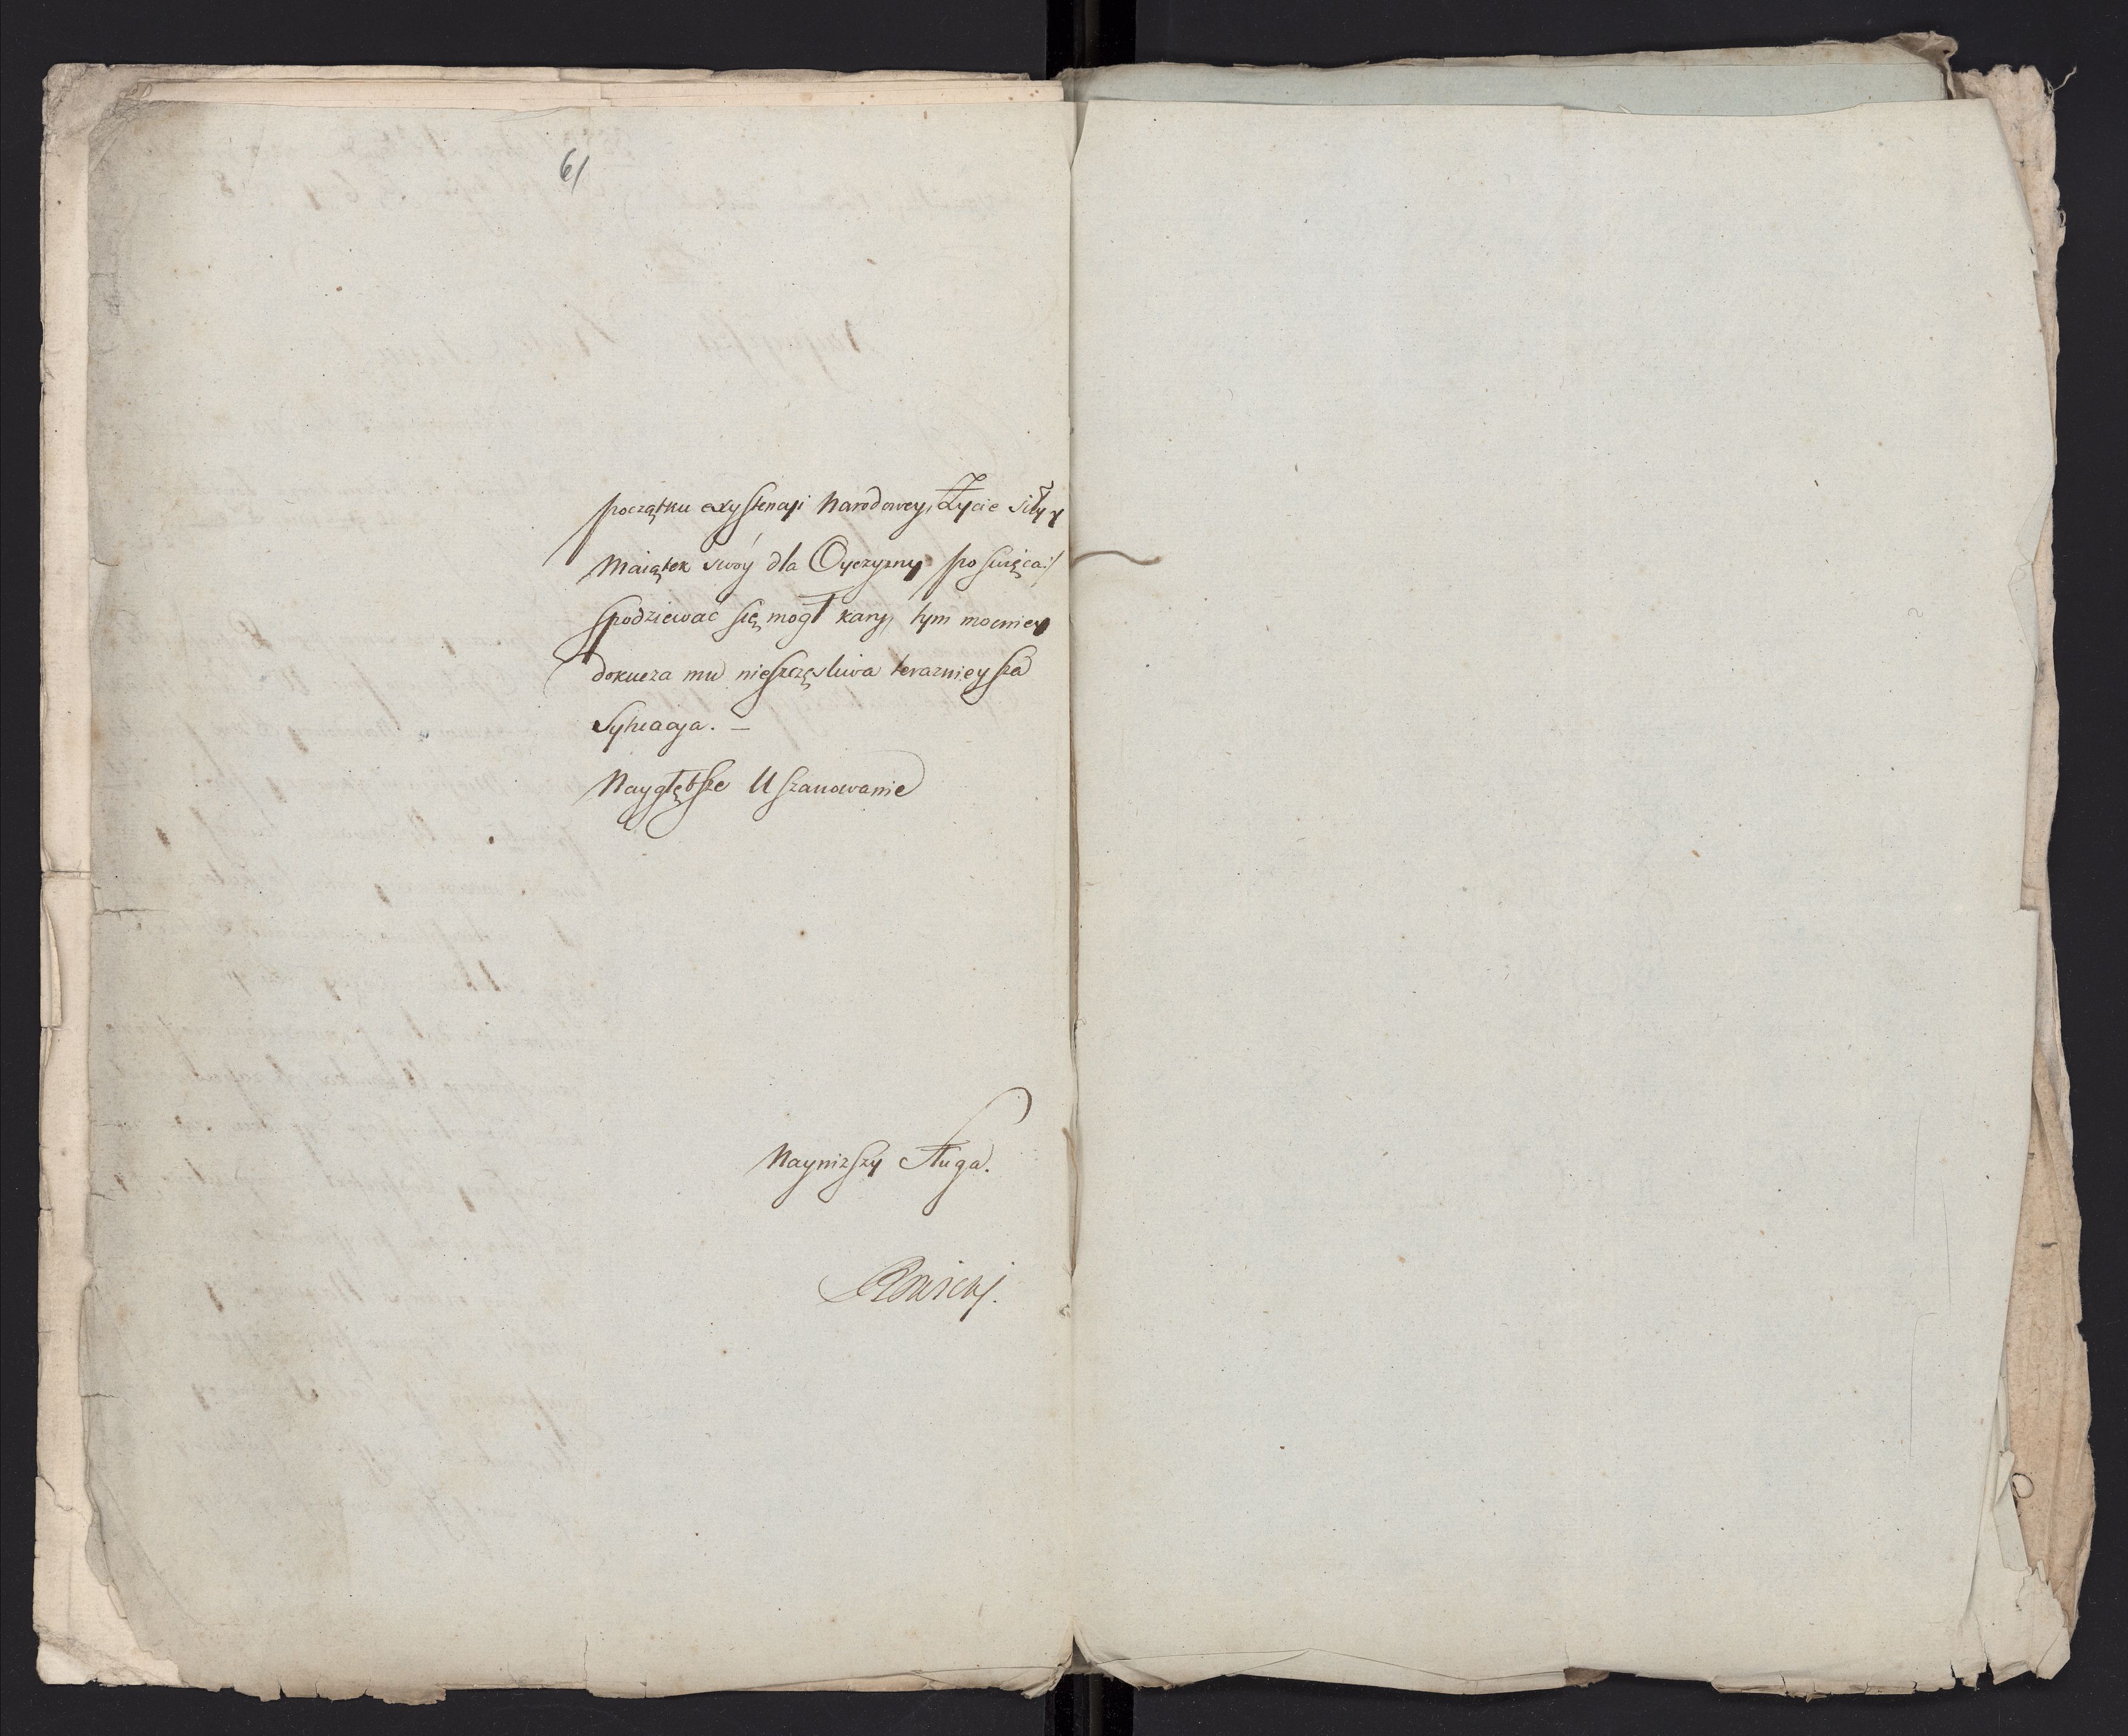 61
początku exystencyi Narodowey, Życie siły y
Maiątek swóy dla Oyczyzny poswięca:/
spodziewać się mogł kary, tym mocniey
dokucza mu nieszczęsliwa teraznieysza
Sytuacya. —
Naygłębsze Uszanowanie
Nayniższy Sługa.